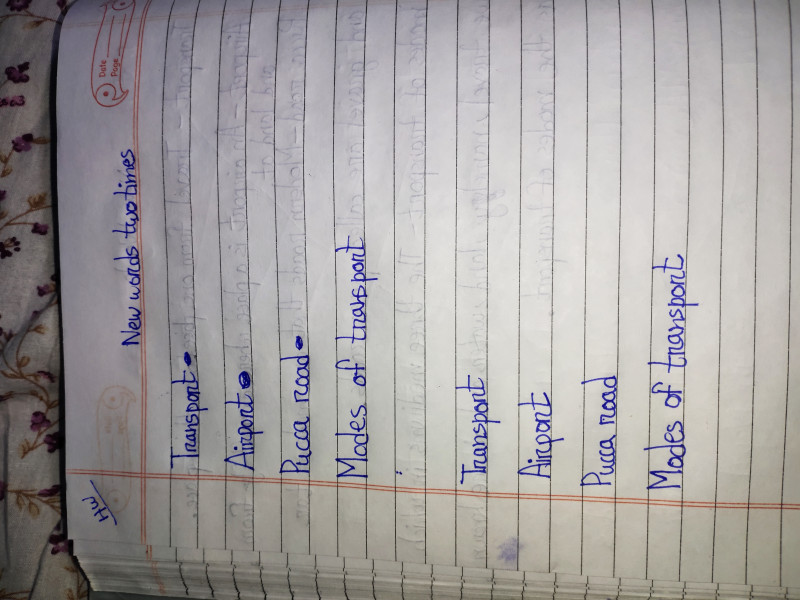 Date
Page
HW
New words two times
Transport
Airport
Pucca road
Modes of transport
Transport
Airport
Pucca road
Modes of transport